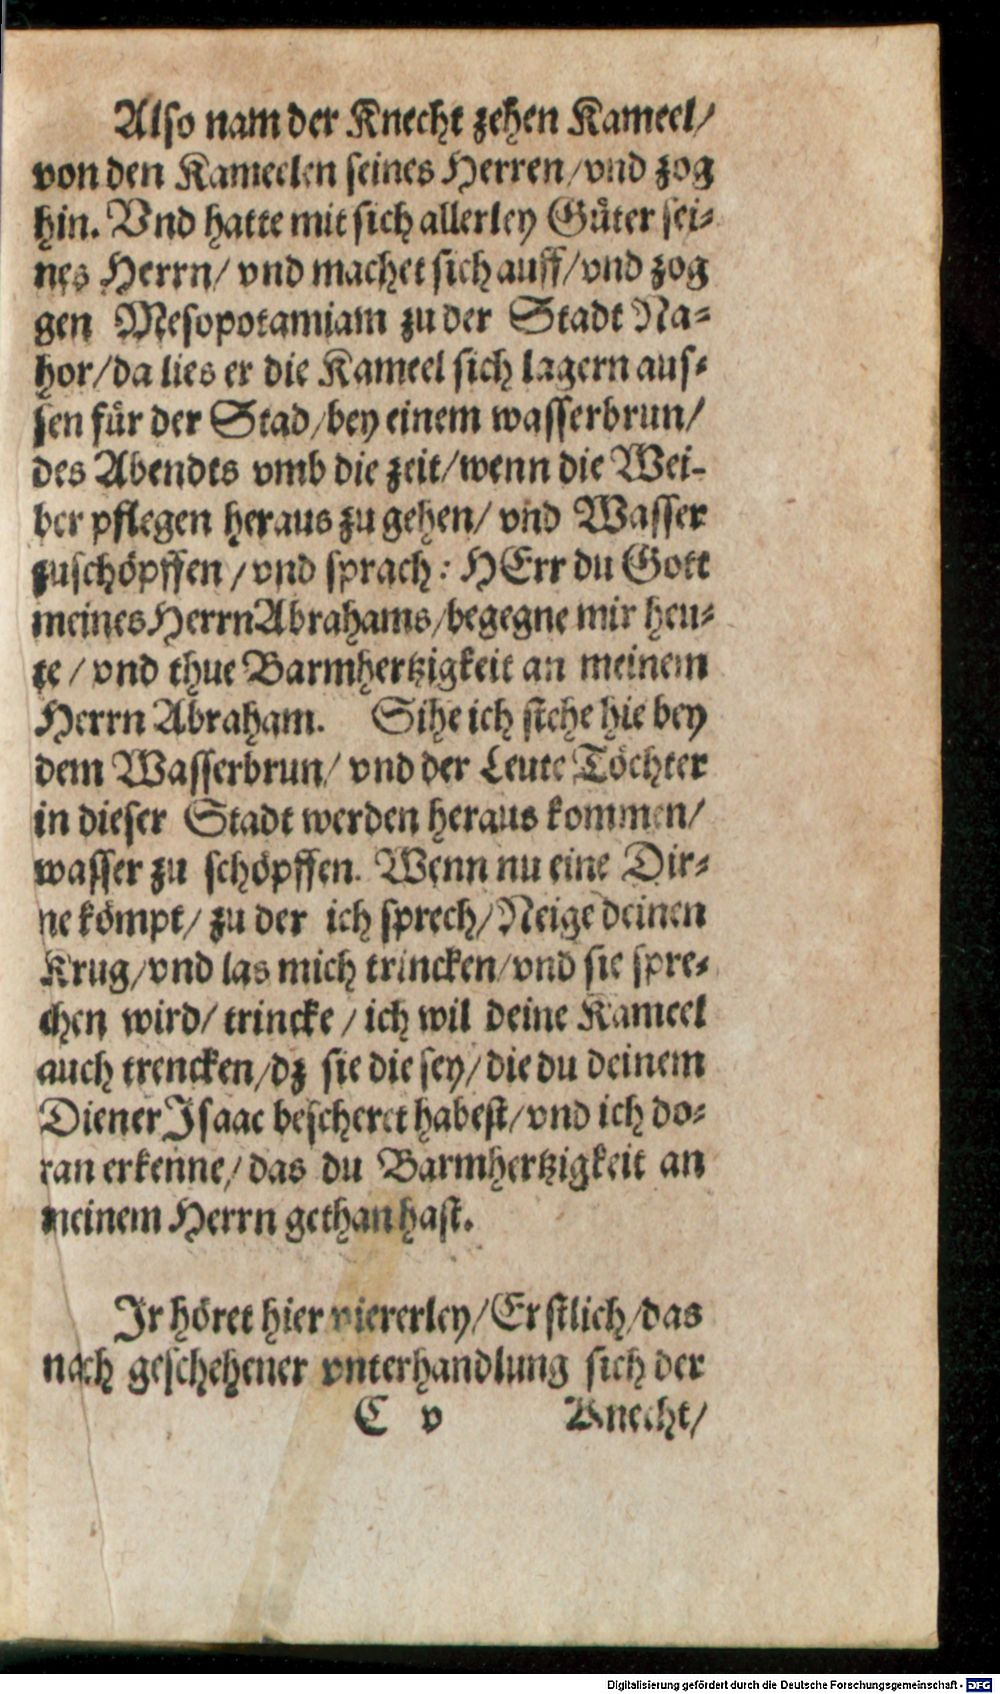 Also nam der Knecht zehen Kameel/
von den Kameelen seines Herren/vnd zog
hin. Vnd hatte mit sich allerley Güter sei-
nes Herrn/ vnd machet sich auff/vnd zog
gen Mesopotamiam zu der Stadt Na-
hor/da lies er die Kameel sich lagern aus-
sen für der Stad/bey einem wasserbrun/
des Abendts vmb die zeit/wenn die Wei-
ber pflegen heraus zu gehen/ vnd Wasser
zuschöpffen/vnd sprach: HErr du Gott
meines Herrn Abrahams/begegne mir heu-
te/ vnd thue Barmhertzigkeit an meinem
Herrn Abraham. Sihe ich stehe hie bey
dem Wasserbrun/ vnd der Leute Töchter
in dieser Stadt werden heraus kommen/
wasser zu schöpffen. Wenn nu eine Dir-
ne kömpt/ zu der ich sprech/Neige deinen
Krug/vnd las mich trincken/vnd sie spre-
chen wird/ trincke/ich wil deine Kameel
auch trencken/dz sie die sey/die du deinem
Diener Isaac bescheret habest/vnd ich do-
ran erkenne/das du Barmhertzigkeit an
meinem Herrn gethan hast.
Ir höret hier viererley/Erstlich/das
nach geschehener vnterhandlung sich der
C v Knecht/
Digitalisierung gefördert durch die Deutsche Forschungsgemeinschaft - DFG